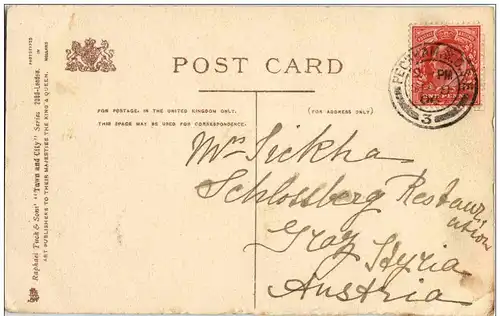 POST CARD
FOR POSTAGE, IN THE UNITED KINGDOM ONLY,
THIS SPACE MAY BE USED FOR CORRESPONDENCE.
(FOR ADDRESS ONLY)
Raphael Tuck & Sons' "Town and City" Series 2050-London.
ART PUBLISHERS TO THEIR MAJESTIES THE KING & QUEEN.
PM
3
Mrs Sickha
Schlossberg Restaur,
ation
Graz Styria
Austria